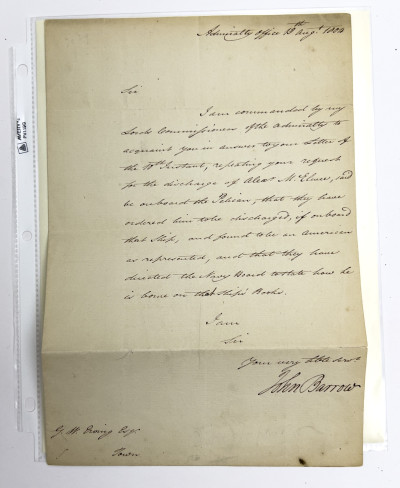 Admiralty Office 18th Augt. 1804
Sir
I am commanded by my
Lords Commissioners of the Admiralty to
acquaint you in answer to your Letter of
the Instant, repeating your request
for the discharge of Alexr. Mc. said
be on board the Pelican, that they have
ordered him to be discharged, if on board
that Ship, and found to be an American
as represented, and that they have
directed the Navy Board to state how he
is borne on that Ship's Books.
I am
Sir
Your very
John Barrow
G. W. Erving Esqr.
Town